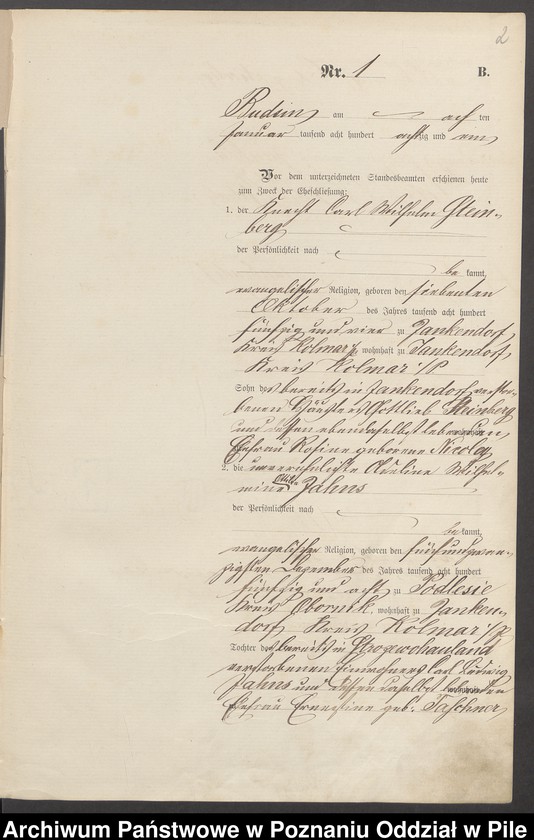 2
Nr. 1 B.
Budsin am ach ten
Januar tausend acht hundert achtzig und ein
Vor dem unterzeichneten Standesbeamten erschienen heute
zum Zweck der Eheschließung:
1. der Knecht Carl Wilhelm Stein-
berg
der Persönlichkeit nach
be kannt,
evangelischer Religion, geboren den siebenten
Oktober des Jahres tausend acht hundert
fünfzig und vier zu Jankendorf
Kreis Kolmar i/P, wohnhaft zu Jankendorf
Kreis Kolmar i/P
Sohn des bereits in Jankendorf verstor-
benen Gottlieb Steinberg
und dessen ebendaselbst lebenden
Ehefrau Rosine geborene Nicolay
2. die unverehelichte Wilhel-
mine Ottilie Jahns
der Persönlichkeit nach
be kannt,
evangelischer Religion, geboren den fünfundzwan-
zigsten Dezember des Jahres tausend acht hundert
fünfzig und acht zu Podlesie
Kreis Obornik, wohnhaft zu Janken-
dorf Kreis Kolmar i/P
Tochter des bereits in
verstorbenen Einwohners Carl Ludwig
Jahns und dessen daselbst lebenden
Ehefrau Ernestine geb. Taschner
Archiwum Państwowe w Poznaniu Oddział w Pile